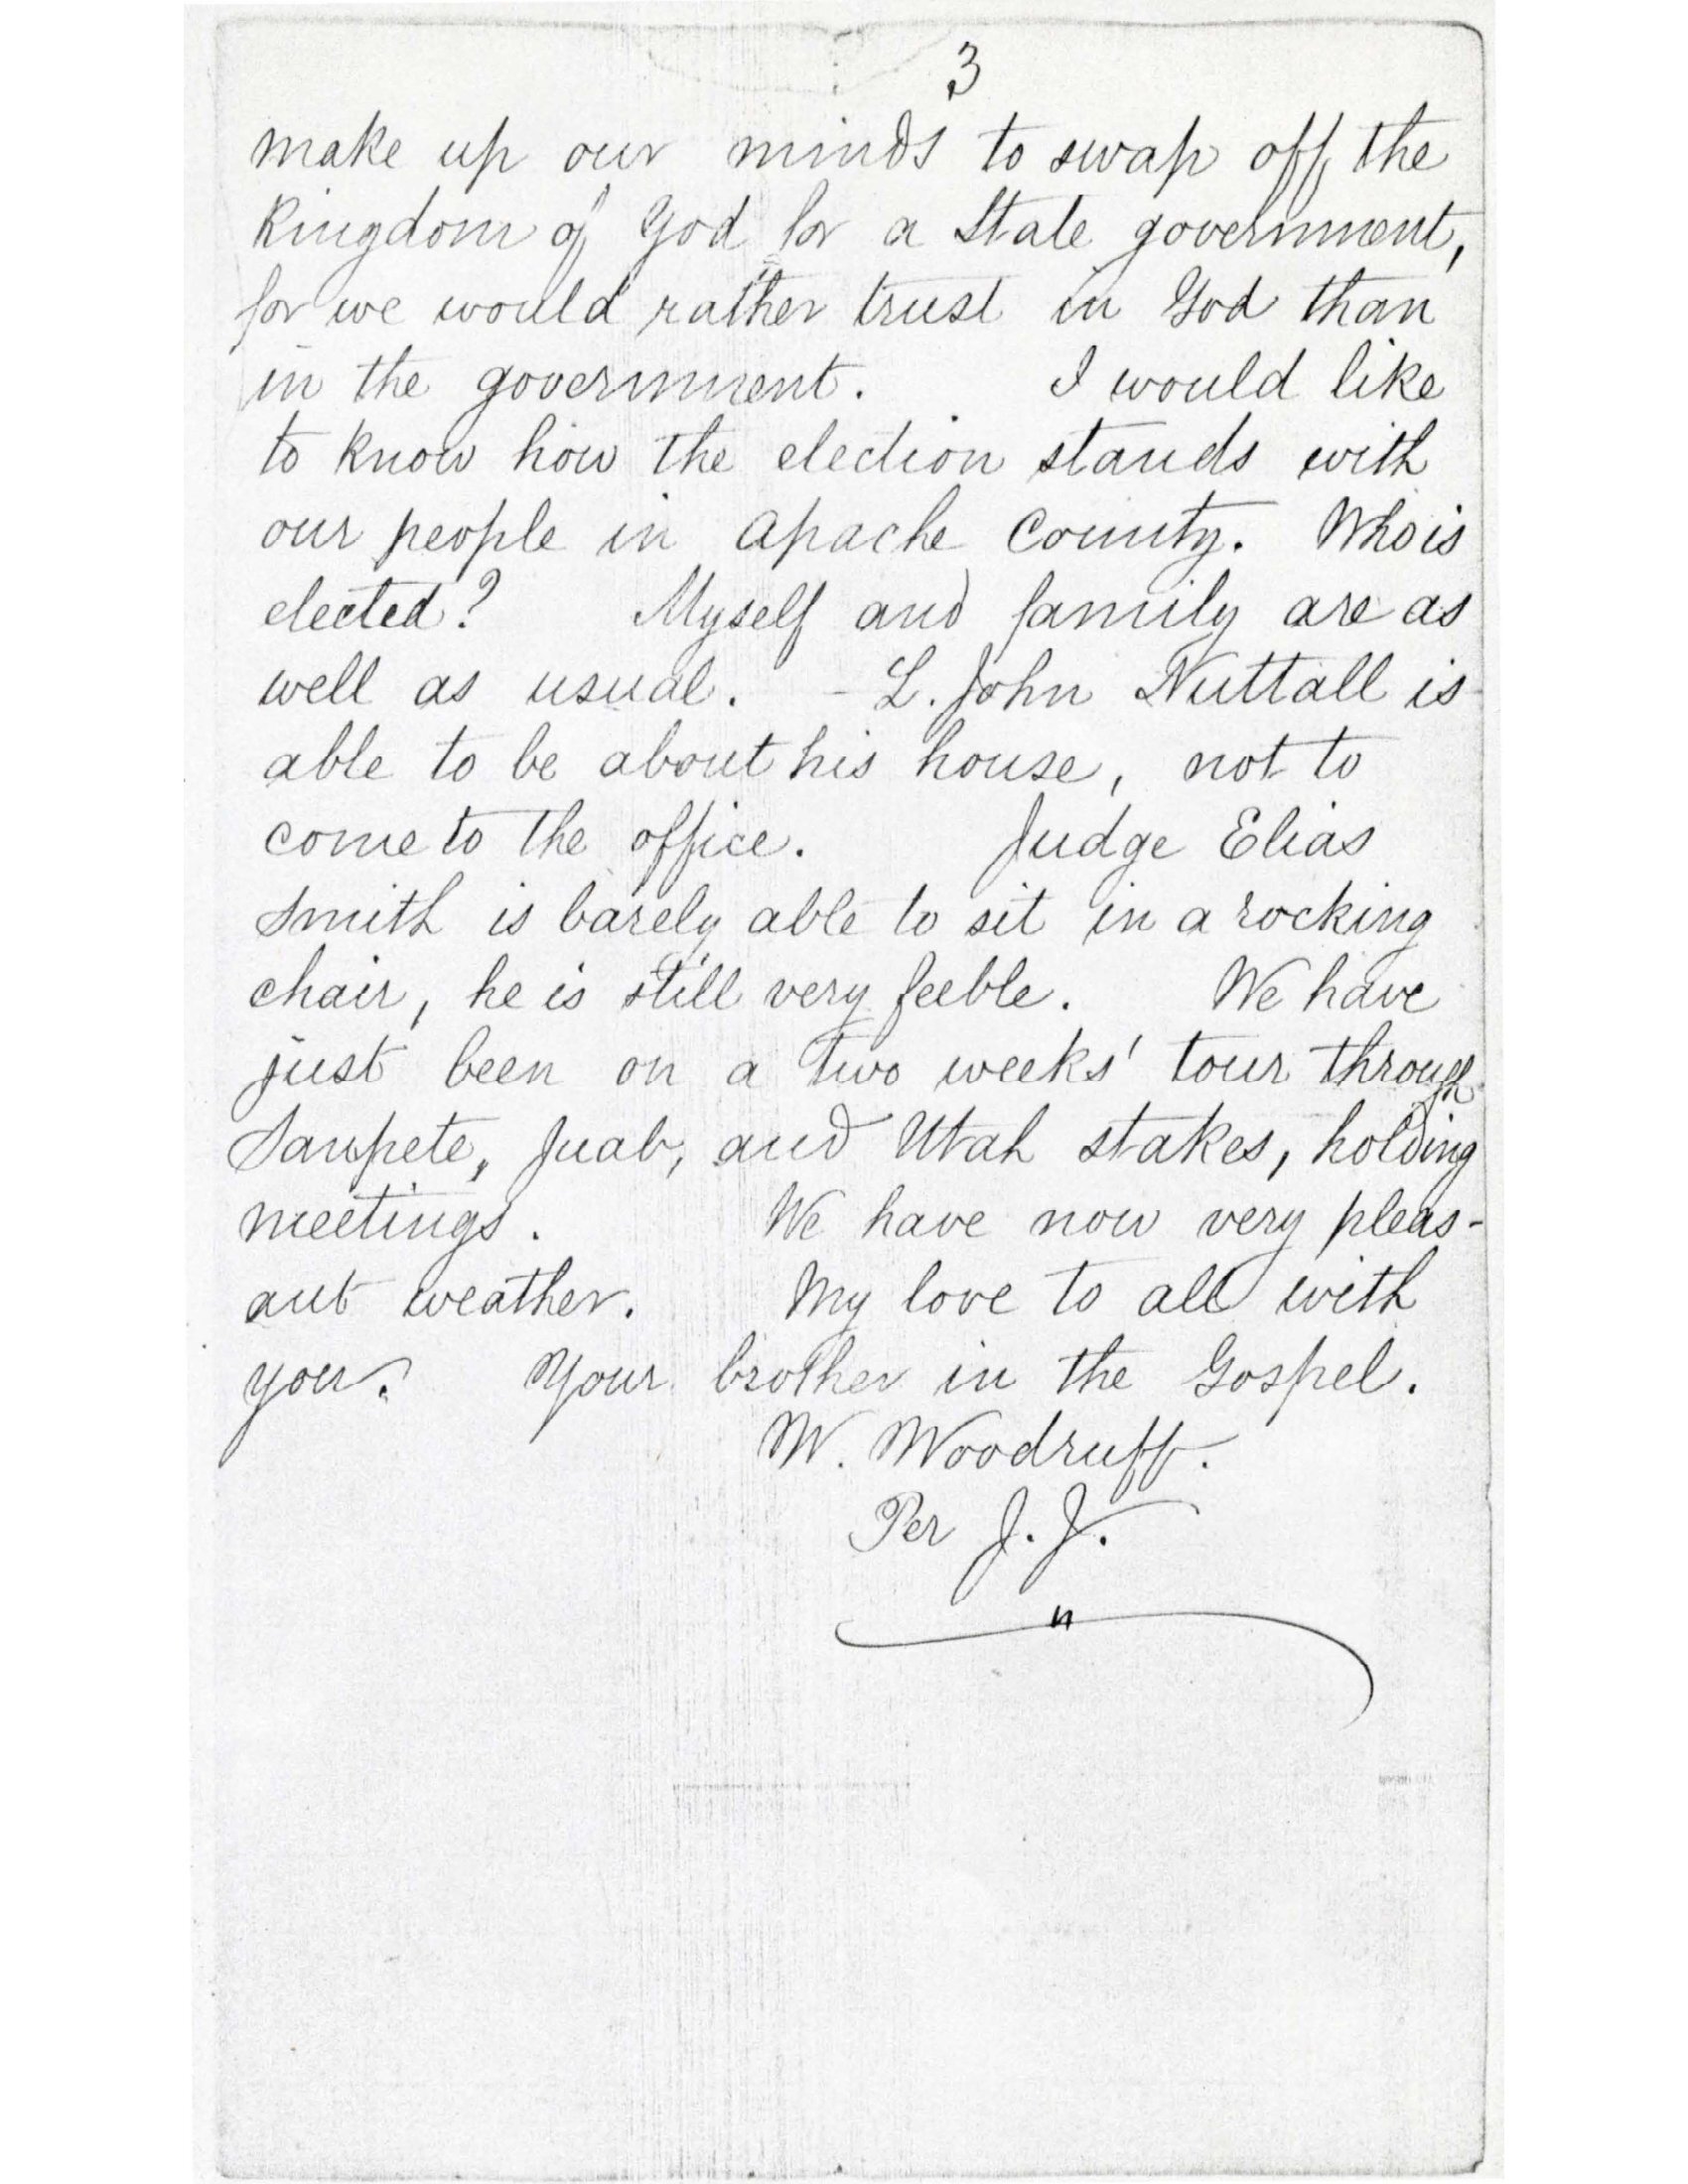 3
make up our minds to swap off the
Kingdom of God for a State government,
for we would rather trust in God than
in the government. I would like
to know how the election stands with
our people in Apache County. Who is
elected? Myself and family are as
well as usual. - L. John Nuttall is
able to be about his house, not to
come to the office. Judge Elias
Smith is barely able to sit in a rocking
chair, he is still very feeble. We have
just been on a two weeks' tour through
Sanpete, Juab, and Utah stakes, holding
meetings. We have now very pleas-
ant weather. My love to all with
you. Your brother in the Gospel.
W. Woodruff.
Per J. J.
"